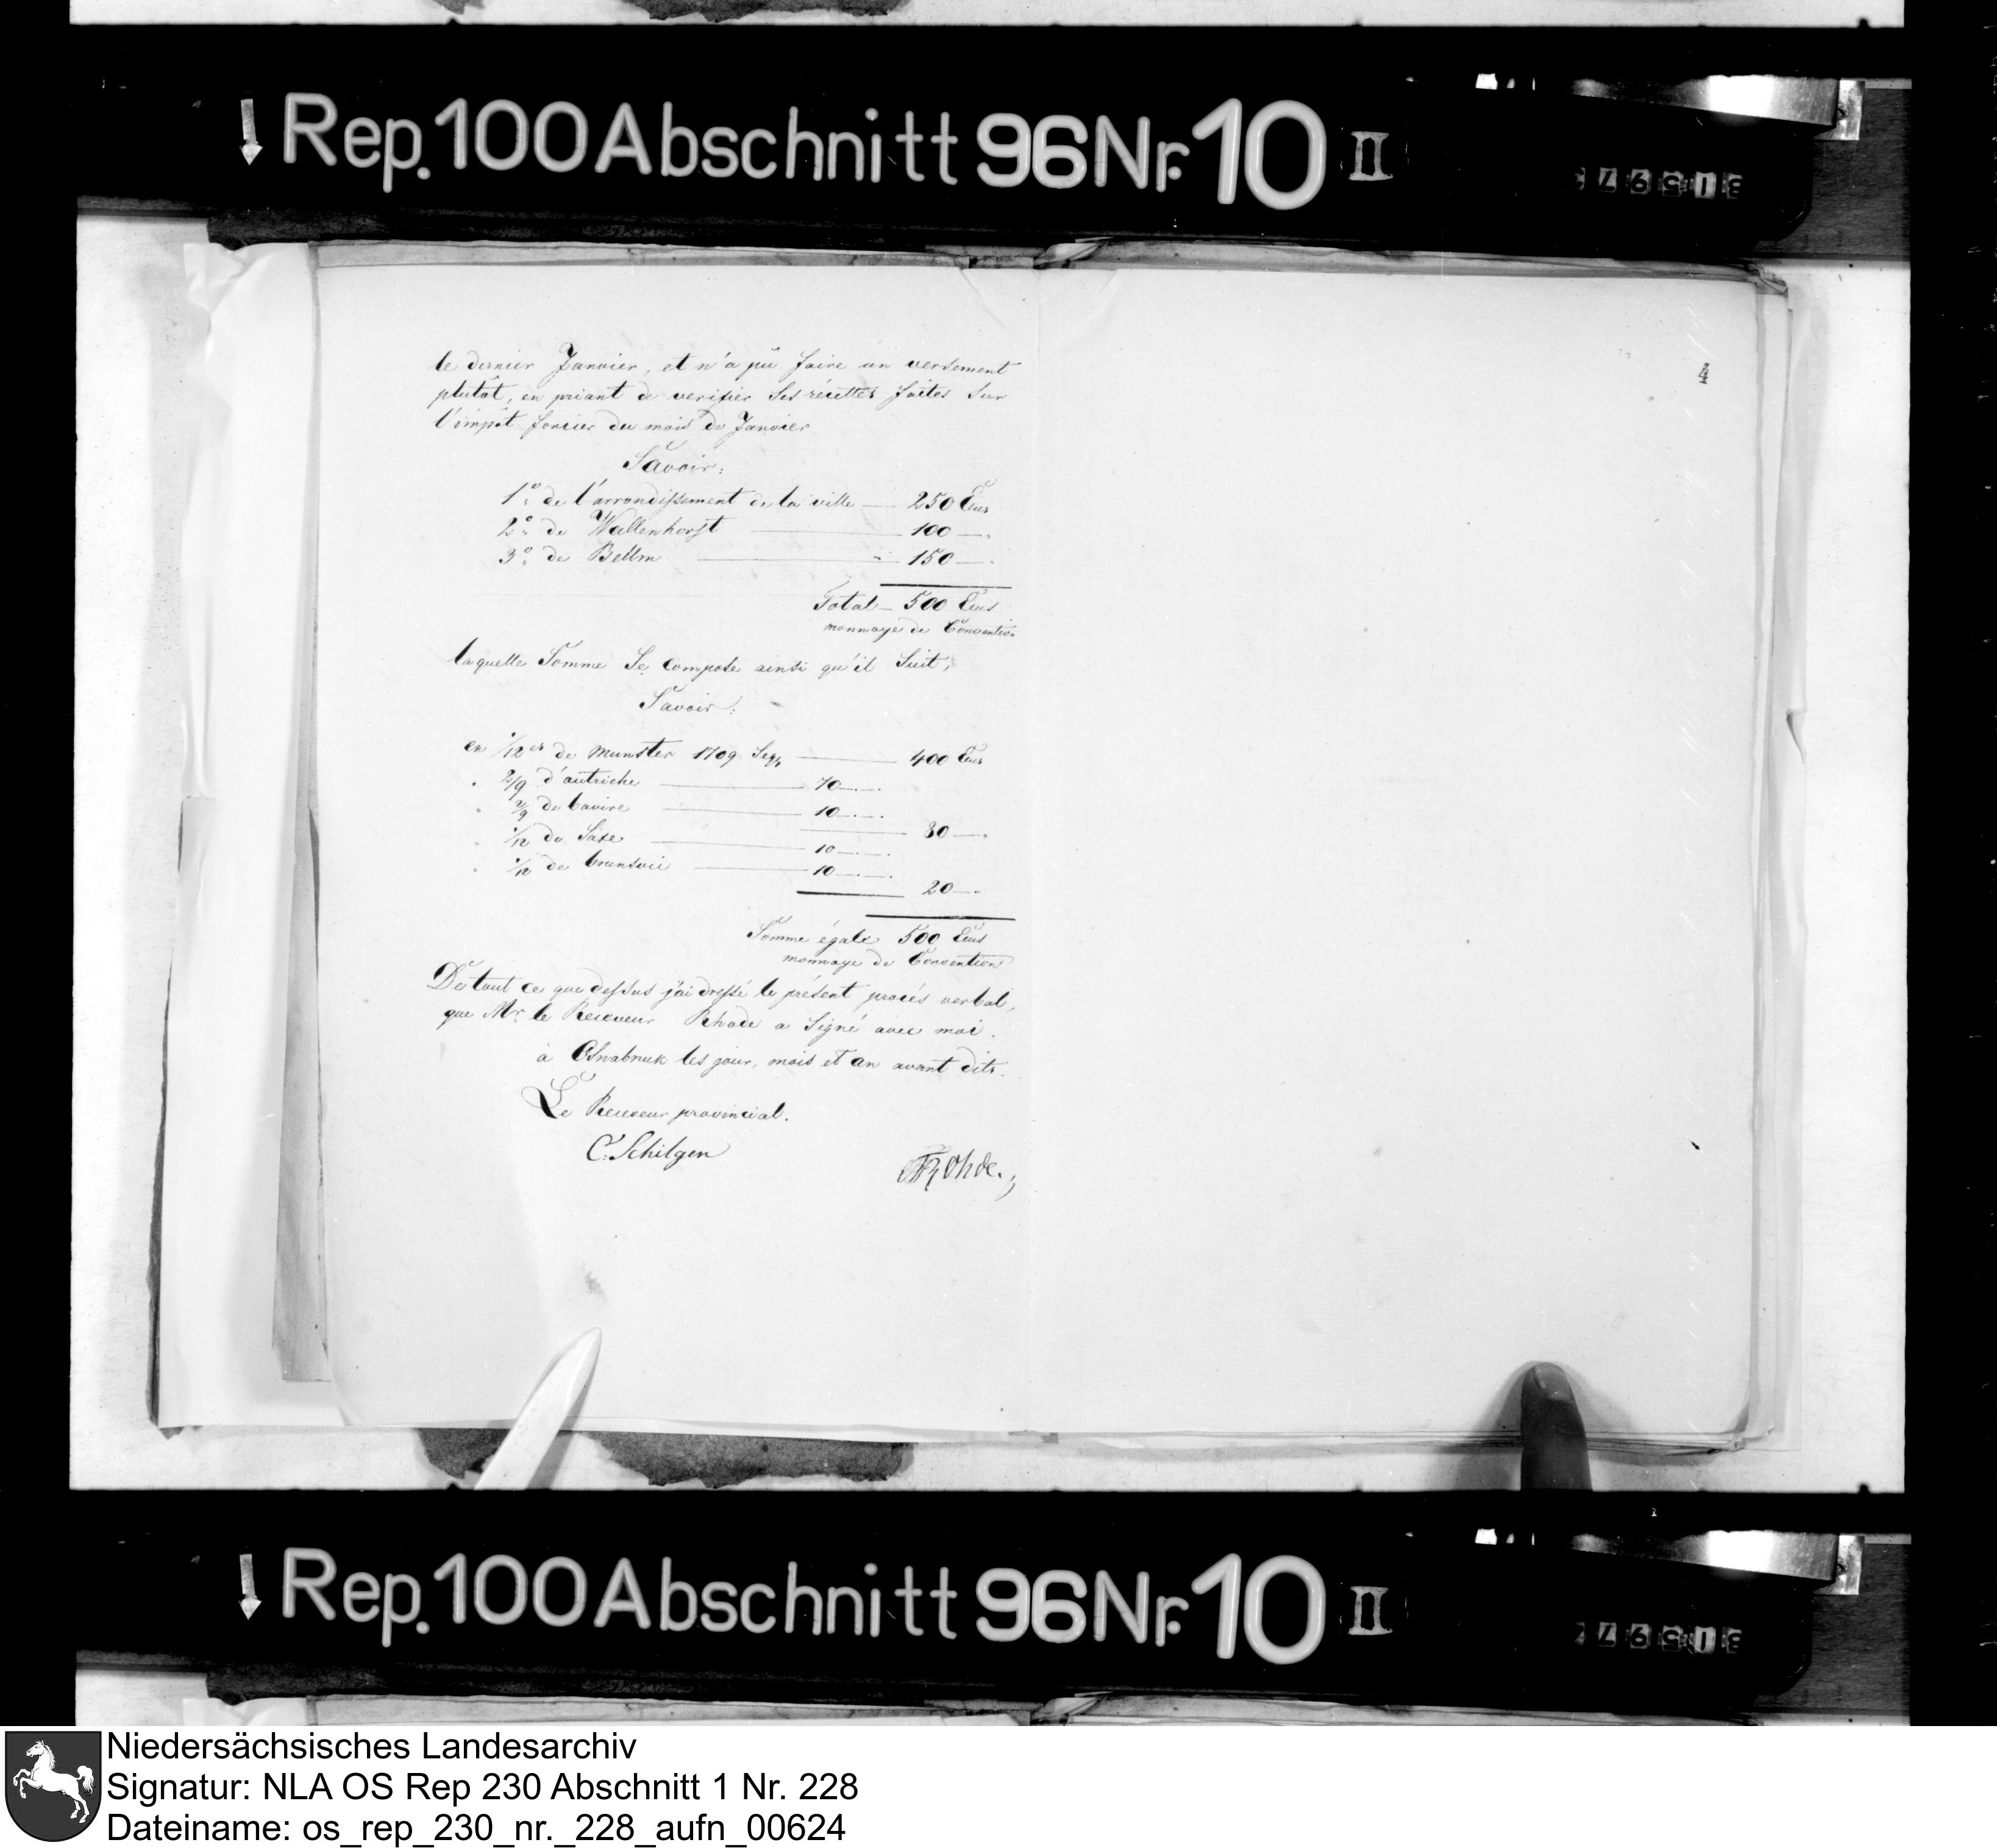 Rep. 100 Abschnitt 96 Nr. 10 II
le dernier Janvier, et n'a pû faire un versement
plutôt, en priant de verifier ses récettes faites sur
l'impôt foncier du mois de Janvier
Savoir:
1° de l'arrondissement de la ville — 250 Ecus
2° de Wallenhorst — 100 —.
3° de Bellm — 150 —.
Total — 500 Ecus
monnaye de Convention
laquelle Somme Se compose ainsi qu'il Suit,
Savoir:
en 1/12 er de Munster 1709 — 400 Ecus
" 2/9 d'autriche — 70 —.—.
" 2/9 de baviere — 10 —.—.
80 —.
" 1/12 de Saxe — 10 —.—.
" 1/12 de brunsvic — 10 —.—.
20 —.
Somme égale 500 Ecus
monnaye de Convention
De tout ce que dessus j'ai dressé le présent procés verbal,
que Mr. le Receveur Rhode a Signé avec moi.
à Osnabruk les jour, mois et an avant dits.
Le Receveur provincial.
C. Schilgen
Rohde.
Rep. 100 Abschnitt 96 Nr. 10 II
Niedersächsisches Landesarchiv
Signatur: NLA OS Rep 230 Abschnitt 1 Nr. 228
Dateiname: os_rep_230_nr._228_aufn_00624